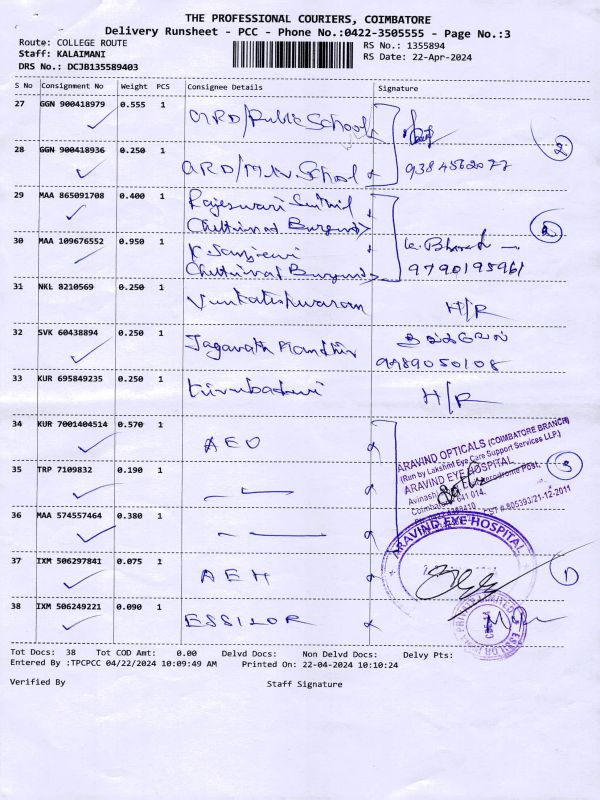 THE PROFESSIONAL COURIERS, COIMBATORE
Delivery Runsheet - PCC - Phone No.:0422-3505555 - Page No.:3
Route: COLLEGE ROUTE
Staff: KALAIMANI
DRS No.: DCJB135589403
RS No.: 1355894
RS Date: 22-Apr-2024
S No Consignment No Weight PCS Consignee Details Signature
27 GGN 900418979 0.555 1
GRD/Public School
28 GGN 900418936 0.250 1
GRD/M.N. School
9384562077
2
29 MAA 865091708 0.400 1
Rajeswari Senthil
Chettinad
30 MAA 109676552 0.950 1
K
Chettinad
K. Bharath
9790195961
2
31 NKL 8210569 0.250 1
Venkateshwaran H/R
32 SVK 60438894 0.250 1
Jagavath Mandhir
9489050108
33 KUR 695849235 0.250 1
Kirubadevi H/R
34 KUR 7001404514 0.570 1
AEO
35 TRP 7109832 0.190 1
36 MAA 574557464 0.380 1
ARAVIND OPTICALS (COIMBATORE BRANCH)
(Run by Lakshmi Eye Care Support Services LLP.)
ARAVIND EYE HOSPITAL
Avinashi Aerodrome Post,
Coimbatore 641 014.
CST #:805393/21-12-2011
3
37 IXM 506297841 0.075 1
AEH
ARAVIND EYE HOSPITAL
1
38 IXM 506249221 0.090 1
ESSILOR
Tot Docs: 38 Tot COD Amt: 0.00 Delvd Docs: Non Delvd Docs: Delvy Pts:
Entered By :TPCPCC 04/22/2024 10:09:49 AM Printed On: 22-04-2024 10:10:24
Verified By Staff Signature